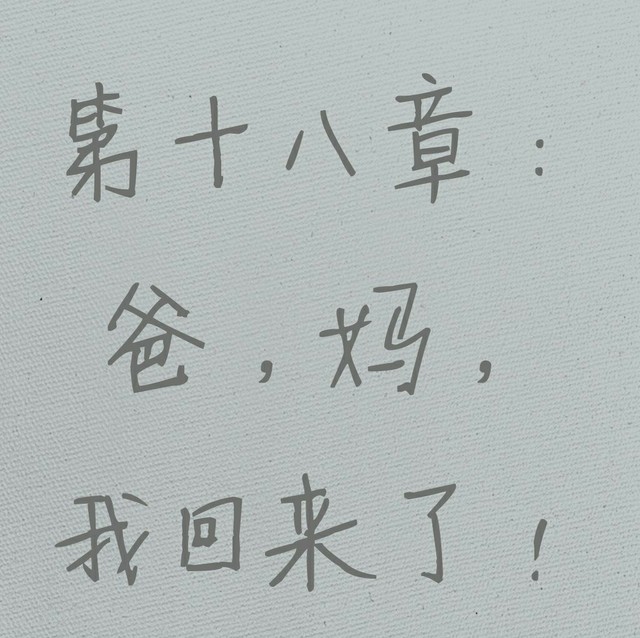 第十八章：
爸，妈，
我回来了！